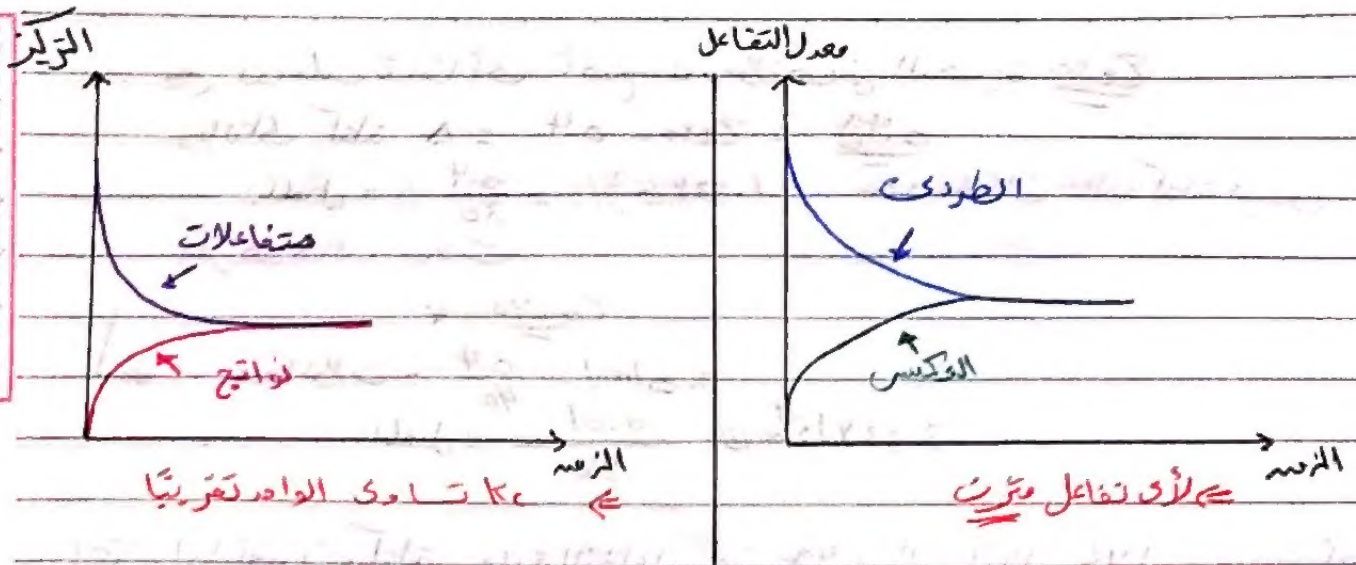 معدل التفاعل
الطردى
العكسى
الزمن
⇐ لأى تفاعل متزن
التركيز
متفاعلات
نواتج
الزمن
⇐ Kc تساوى الواحد تقريبًا